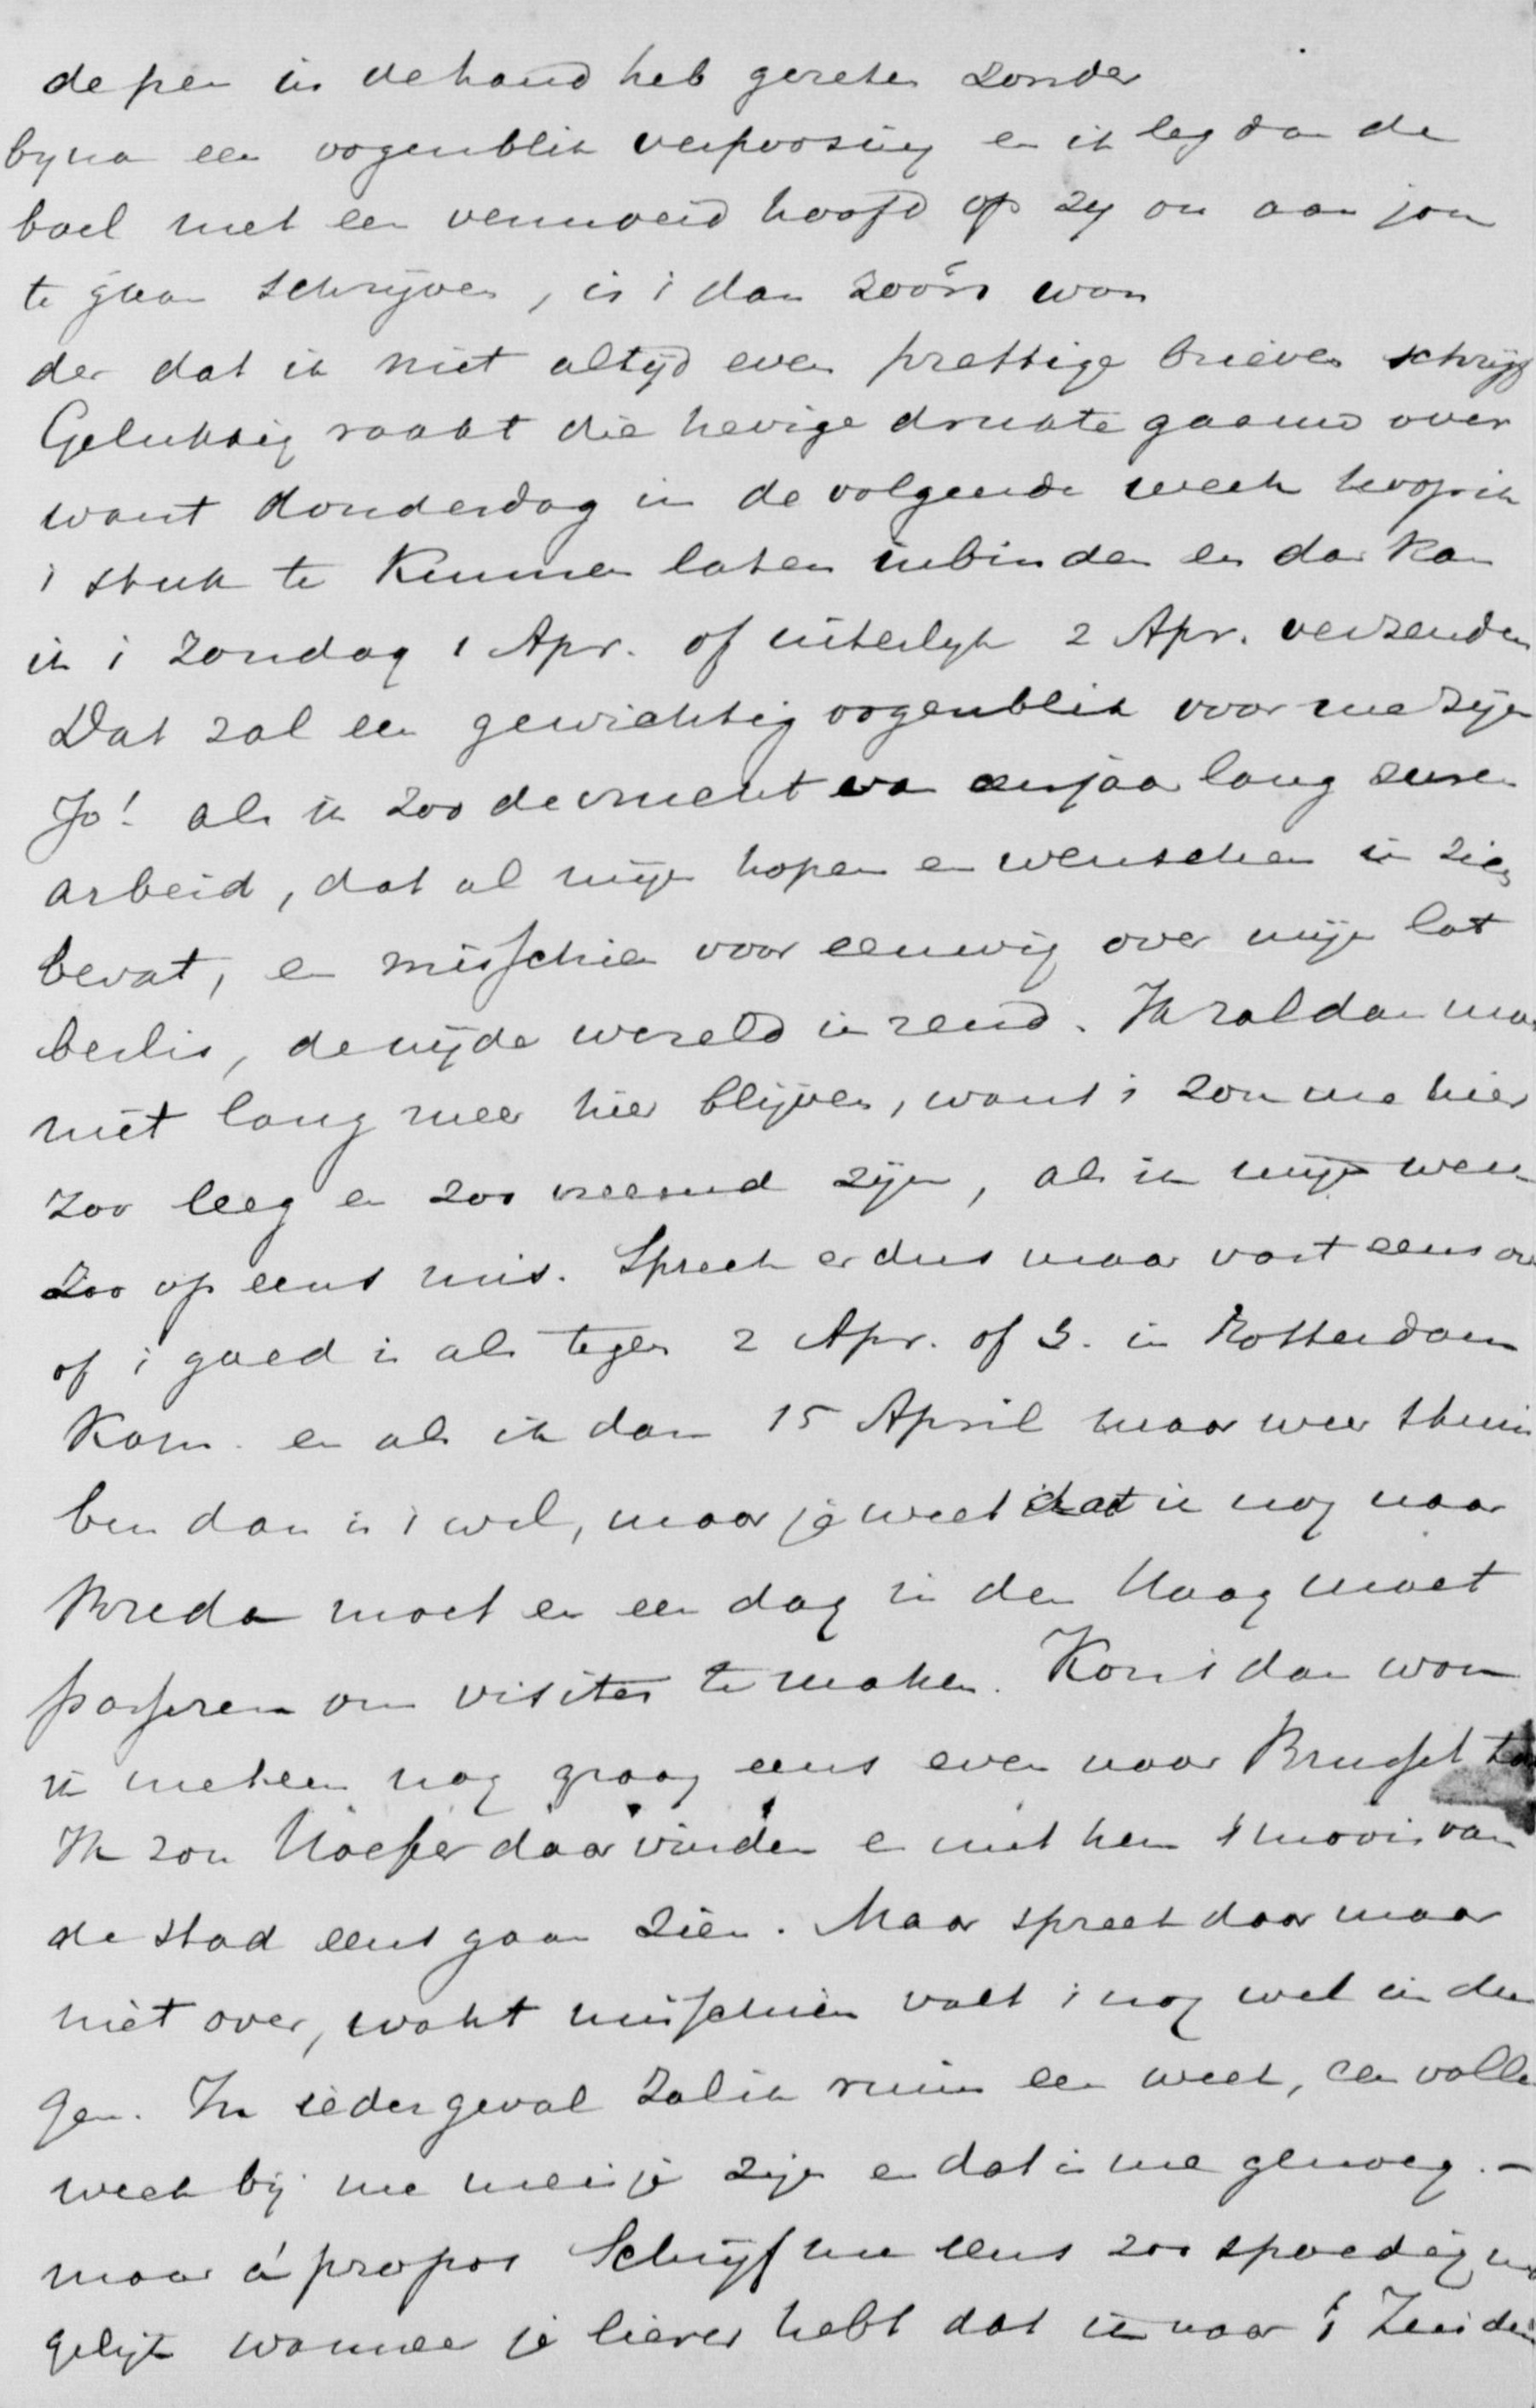 de pen in de hand heb gezeten zonder
byna een oogenblik verpoozing en ik leg dan de
boel met een vermoeid hoofd op zy om aan jou
te gaan schrijven, is 't dan zoo'n won
der dat ik niet altijd even prettige brieven schrijf
Gelukkig raakt die hevige drukte gaauw over
want donderdag in de volgende week hoop ik
't stuk te kunnen laten inbinden en dan kan
ik 't Zondag 1 Apr. of uiterlyk 2 Apr. verzenden
Dat zal een gewichtig oogenblik voor me zijn
Jo! als ik zoo de vrucht van een jaar lang zuren
arbeid, dat al mijn hopen en wenschen in zich
bevat, en misschien voor eeuwig over mijn lot
beslis, de wijde wereld in zend. Ik zal dan maar
niet lang meer hier blijven, want 't zou me hier
zoo leeg en zoo vreemd zijn, als ik mijn werk
zoo op eens mis. Spreek er dus maar vast eens over
of 't goed is als tegen 2 Apr. of 3. in Rotterdam
kom. en als ik dan 15 April maar weer thuis
ben dan is 't wel, maar je weet dat ik nog naar
Breda moet en een dag in den Haag moet
passeren om visites te maken. Kon 't dan wou
ik meteen nog graag eens even naar Brussel toe
Ik zou daar vinden en met hem 't moois van
de stad eens gaan zien. Maar spreek daar maar
niet over, want misschien valt 't nog wel in dui
gen. In ieder geval zal ik ruim een week, een volle
week bij me meisje zijn en dat is me genoeg. –
maar á propos Schrijf me eens zoo spoedig mo
gelijk wanneer je liever hebt dat ik naar 't Zuiden